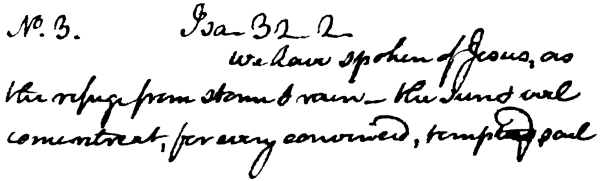 No. 3. Isa- 32-2-
We have spoken of Jesus, as
the refuge from storm & rain - the
, for every convinced, tempted soul